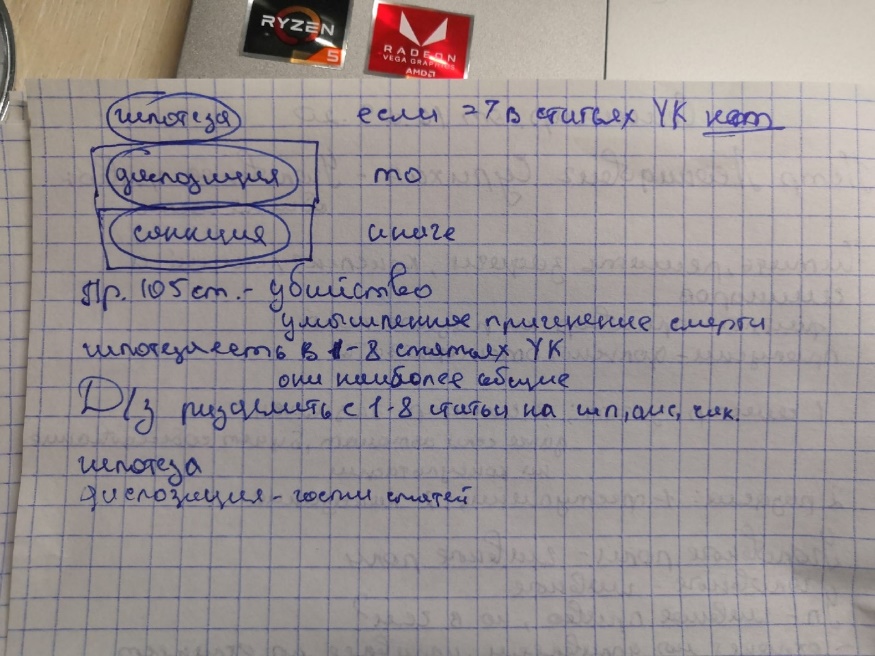 RYZEN
5
RADEON
VEGA GRAPHICS
AMD
гипотеза если => в статьях УК нет
диспозиция то
санкция иначе
Пр. 105 ст. - убийство
умышленное причинение смерти
гипотеза есть в 1-8 статьях УК
они наиболее общие
Д/з разделить с 1-8 статьи на гип, дис, сан.
гипотеза
диспозиция - части статей